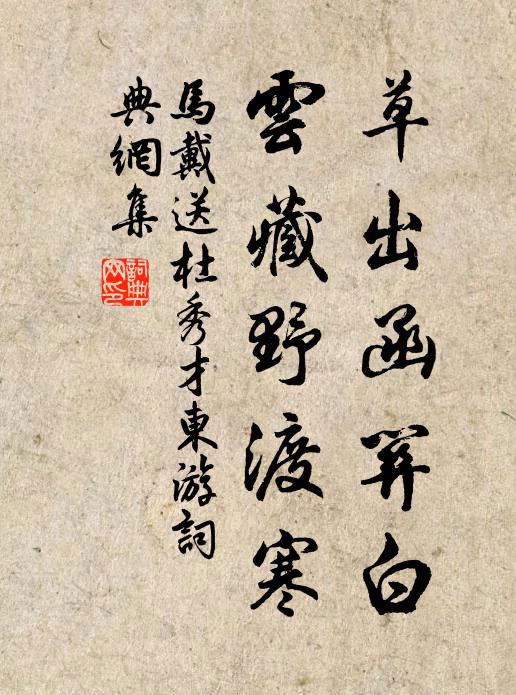 草出函關白
雲藏野渡寒
馬戴送杜秀才東游詞
典網集
詞典
网印